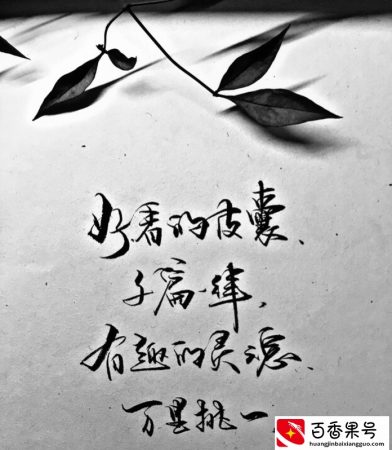 好看的皮囊、
千篇一律，
有趣的灵魂、
万里挑一
百香果号
huangjinbaixiangguo.com